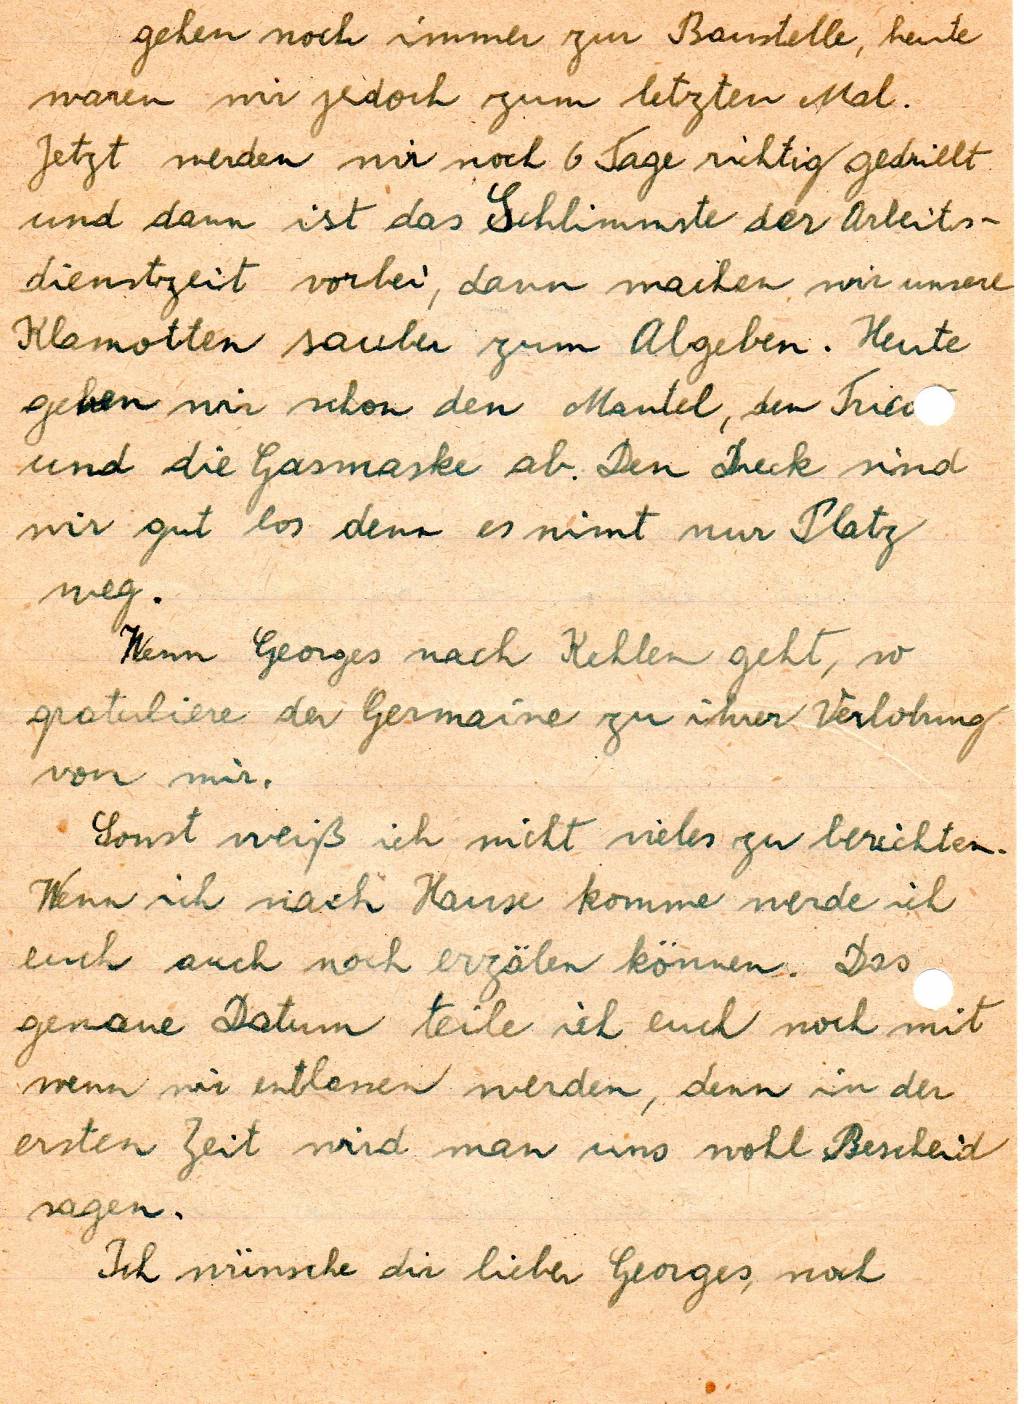 gehen noch immer zur Baustelle, heute
waren wir jedoch zum letzten Mal.
Jetzt werden wir noch 6 Tage richtig gedrillt
und dann ist das Schlimmste der Arbeits-
dienstzeit vorbei, dann machen wir unsere
Klamotten sauber zum Abgeben. Heute
geben wir schon den Mantel, den
und die Gasmaske ab. Den Dreck sind
wir gut los denn es nimt nur Platz
weg.
Wenn Georges nach Kehlen geht, so
gratuliere der Germaine zu ihrer Verlobung
von mir.
Sonst weiß ich nicht vieles zu berichten.
Wenn ich nach Hause komme werde ich
euch auch noch erzälen können. Das
genaue Datum teile ich euch noch mit
wenn wir entlassen werden, denn in der
ersten Zeit wird man uns wohl Bescheid
sagen.
Ich wünsche dir lieber Georges, noch